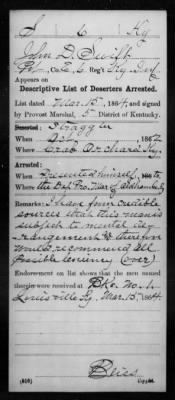 S 6 Ky
John D. Swift
Co. , 6 Reg't Ky. Inf.
Appears on
Descriptive List of Deserters Arrested.
List dated Mar. 15, 1864, and signed
by Provost Marshal, 5 District of Kentucky.
Deserted: Straggler
When Oct, 1862
Where Crab Orchard Ky.
Arrested:
When Presented himself to
Where the Dep. Pro. Mar. of Oldham Co. Ky.
Remarks: I have from credible
sources that this man is
subject to mental de-
rangement & therefore
would recommend all
possible leniency (over)
Endorsement on list shows that the men named
therein were received at Bks. No. 1,
Louisville Ky, Mar. 15, 1864.
Copyist.